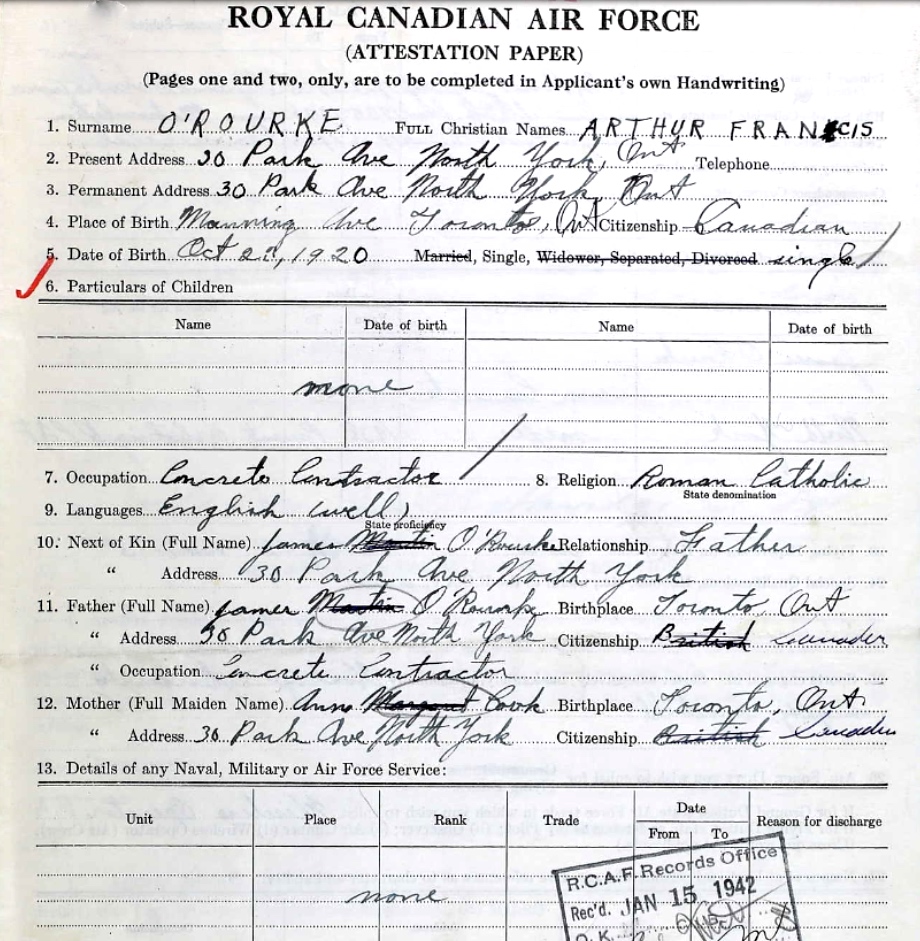 ROYAL CANADIAN AIR FORCE
(ATTESTATION PAPER)
(Pages one and two, only, are to be completed in Applicant's own Handwriting)
1. Surname O'ROURKE FULL Christian Names ARTHUR FRANCIS
2. Present Address 30 Park Ave North York, Ont Telephone
3. Permanent Address 30 Park Ave North York Ont
4. Place of Birth Manning Ave Toronto, Ont Citizenship Canadian
5. Date of Birth Oct 1920 Married, Single, Widower, Separated, Divorced single
6. Particulars of Children
Name Date of birth Name Date of birth
none
7. Occupation Concrete Contractor 8. Religion Roman Catholic
State denomination
9. Languages English (well)
State proficiency
10. Next of Kin (Full Name) James Martin O'Rourke Relationship Father
" Address 30 Park Ave North York
11. Father (Full Name) James Martin O'Rourke Birthplace Toronto Ont
" Address 30 Park Ave North York Citizenship British
" Occupation Concrete Contractor
12. Mother (Full Maiden Name) Anna Margaret Cook Birthplace Toronto, Ont
" Address 30 Park Ave North York Citizenship British
13. Details of any Naval, Military or Air Force Service:
Unit Place Rank Trade Date From To Reason for discharge
none
R.C.A.F. Records Office
Rec'd. JAN 15 1942
O.K.